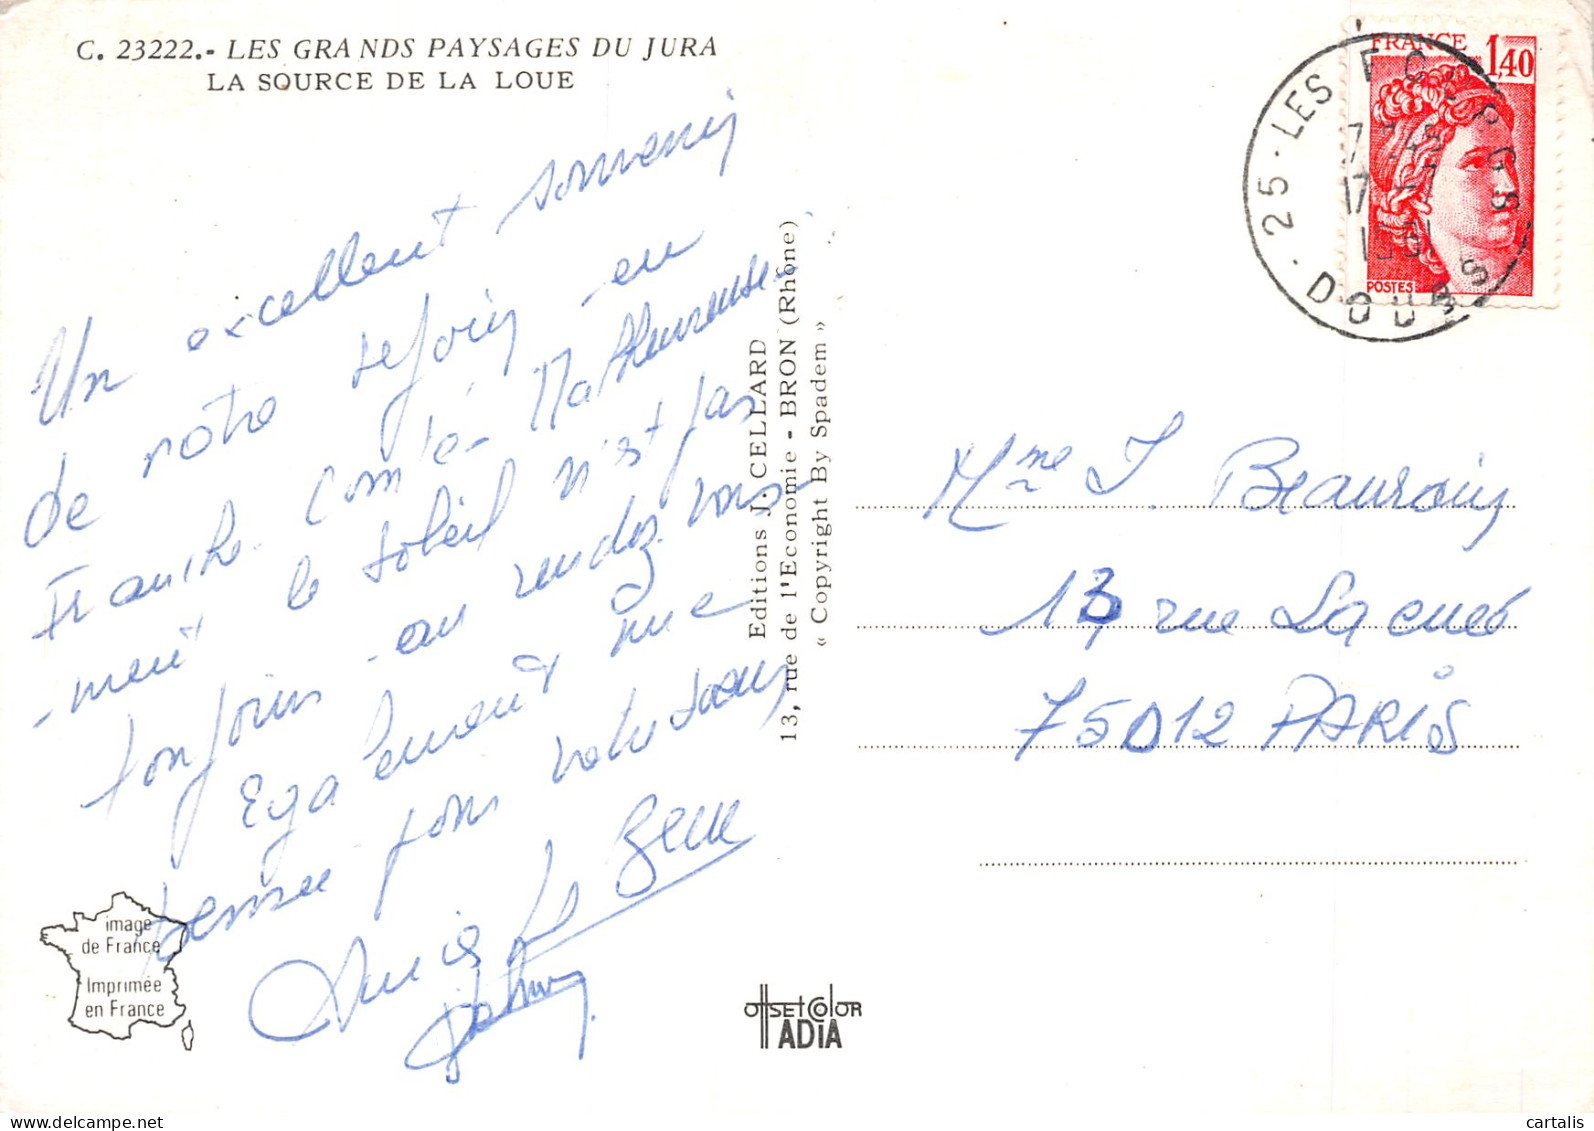 C. 23222.- LES GRANDS PAYSAGES DU JURA
LA SOURCE DE LA LOUE
Un excellent souvenir
de notre séjour en
Franche-Comté - Malheureuse-
-ment le soleil n'est pas
toujours au rendez-vous
Egalement une
pensée pour votre soeur
Editions J. CELLARD
13, rue de l'Economie - BRON (Rhône)
« Copyright By Spadem »
FRANCE
1,40
POSTES
25 · LES
17 -7
DOUBS
Mme J. Beauvois
13, rue Lacuée
75012 PARIS
image
de France
Imprimée
en France
OffsetColor
ADIA
cartalis - delcampe.net